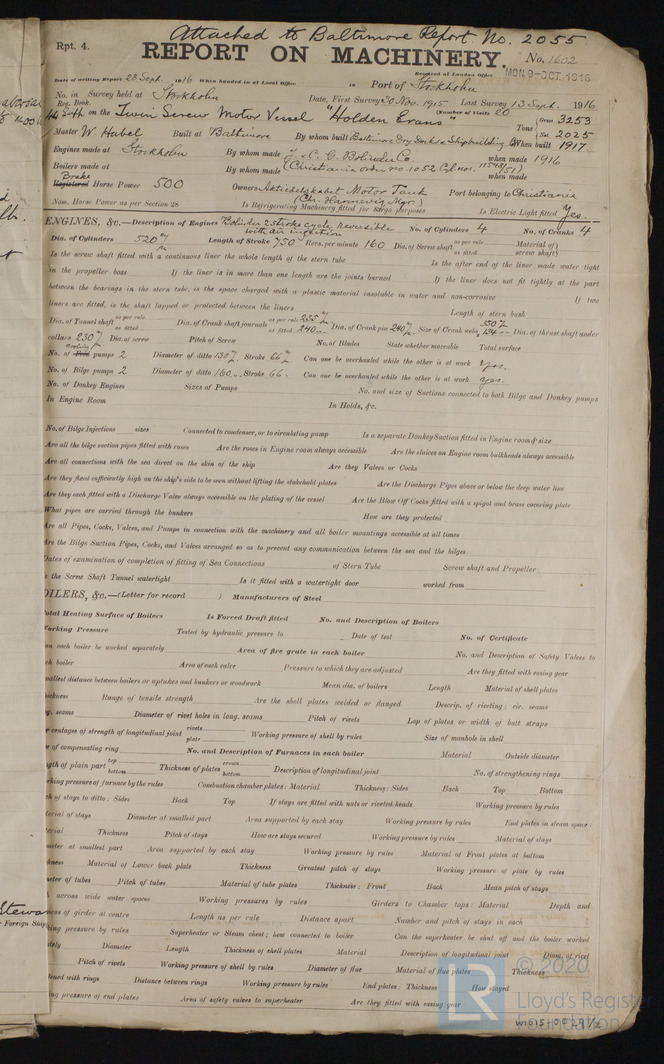 Attached to Baltimore Report No. 2055
Rpt. 4.
REPORT ON MACHINERY. No. 1602
Received at London Office MON. 9-OCT. 1916
Date of writing Report 28 Sept. 1916 When handed in at Local Office Port of Stockholm
No. in Survey held at Stockholm Date, First Survey 30 Nov. 1915 Last Survey 13 Sept. 1916
Reg. Book. (Number of Visits 20
on the Twin Screw Motor Vessel "Holden Evans" Tons Gross 3253 Net 2025
Master W. Habel Built at Baltimore By whom built Baltimore Dry Docks & Shipbuilding Co When built 1917
Engines made at Stockholm By whom made J. & C. G. Bolinder Co. when made 1916
Boilers made at By whom made (Christiania order no. 1052 when made
Brake
Registered Horse Power 500 Owners Aktieselskabet Motor Tank Port belonging to Christiania
(Chr. Hannevig Mgr.)
Nom. Horse Power as per Section 28 Is Refrigerating Machinery fitted for cargo purposes Is Electric Light fitted Yes.
ENGINES, &c.—Description of Engines Bolinder 2 stroke cycle reversible No. of Cylinders 4 No. of Cranks 4
with air injection
Dia. of Cylinders 520 m/m Length of Stroke 750 Revs. per minute 160 Dia. of Screw shaft as per rule as fitted Material of screw shaft
Is the screw shaft fitted with a continuous liner the whole length of the stern tube Is the after end of the liner made water tight
in the propeller boss If the liner is in more than one length are the joints burned If the liner does not fit tightly at the part
between the bearings in the stern tube, is the space charged with a plastic material insoluble in water and non-corrosive If two
liners are fitted, is the shaft lapped or protected between the liners Length of stern bush
Dia. of Tunnel shaft as per rule as fitted Dia. of Crank shaft journals as per rule 235 as fitted 240 Dia. of Crank pin 240 Size of Crank webs Dia. of thrust shaft under
collars 230 Dia. of screw Pitch of Screw No. of Blades State whether moveable Total surface
No. of Cooling pumps 2 Diameter of ditto 130 Stroke 66 Can one be overhauled while the other is at work Yes.
No. of Bilge pumps 2 Diameter of ditto 160 Stroke 66 Can one be overhauled while the other is at work yes.
No. of Donkey Engines Sizes of Pumps No. and size of Suctions connected to both Bilge and Donkey pumps
In Engine Room In Holds, &c.
No. of Bilge Injections sizes Connected to condenser, or to circulating pump Is a separate Donkey Suction fitted in Engine room & size
Are all the bilge suction pipes fitted with roses Are the roses in Engine room always accessible Are the sluices on Engine room bulkheads always accessible
Are all connections with the sea direct on the skin of the ship Are they Valves or Cocks
Are they fixed sufficiently high on the ship's side to be seen without lifting the stokehold plates Are the Discharge Pipes above or below the deep water line
Are they each fitted with a Discharge Valve always accessible on the plating of the vessel Are the Blow Off Cocks fitted with a spigot and brass covering plate
What pipes are carried through the bunkers How are they protected
Are all Pipes, Cocks, Valves, and Pumps in connection with the machinery and all boiler mountings accessible at all times
Are the Bilge Suction Pipes, Cocks, and Valves arranged so as to prevent any communication between the sea and the bilges
Dates of examination of completion of fitting of Sea Connections of Stern Tube Screw shaft and Propeller
the Screw Shaft Tunnel watertight Is it fitted with a watertight door worked from
BOILERS, &c.—(Letter for record ) Manufacturers of Steel
Total Heating Surface of Boilers Is Forced Draft fitted No. and Description of Boilers
Working Pressure Tested by hydraulic pressure to Date of test No. of Certificate
Can each boiler be worked separately Area of fire grate in each boiler No. and Description of Safety Valves to
each boiler Area of each valve Pressure to which they are adjusted Are they fitted with easing gear
Smallest distance between boilers or uptakes and bunkers or woodwork Mean dia. of boilers Length Material of shell plates
Thickness Range of tensile strength Are the shell plates welded or flanged Descrip. of riveting: cir. seams
long. seams Diameter of rivet holes in long. seams Pitch of rivets Lap of plates or width of butt straps
Percentages of strength of longitudinal joint rivets plate Working pressure of shell by rules Size of manhole in shell
of compensating ring No. and Description of Furnaces in each boiler Material Outside diameter
Length of plain part top bottom Thickness of plates crown bottom Description of longitudinal joint No. of strengthening rings
Working pressure of furnace by the rules Combustion chamber plates: Material Thickness: Sides Back Top Bottom
Pitch of stays to ditto: Sides Back Top If stays are fitted with nuts or riveted heads Working pressure by rules
Material of stays Diameter at smallest part Area supported by each stay Working pressure by rules End plates in steam space:
Material Thickness Pitch of stays How are stays secured Working pressure by rules Material of stays
Diameter at smallest part Area supported by each stay Working pressure by rules Material of Front plates at bottom
Thickness Material of Lower back plate Thickness Greatest pitch of stays Working pressure of plate by rules
Diameter of tubes Pitch of tubes Material of tube plates Thickness: Front Back Mean pitch of stays
across wide water spaces Working pressures by rules Girders to Chamber tops: Material Depth and
thickness of girder at centre Length as per rule Distance apart Number and pitch of stays in each
Working pressure by rules Superheater or Steam chest; how connected to boiler Can the superheater be shut off and the boiler worked
separately Diameter Length Thickness of shell plates Material Description of longitudinal joint Diam. of rivet
Pitch of rivets Working pressure of shell by rules Diameter of flue Material of flue plates Thickness
stiffened with rings Distance between rings Working pressure by rules End plates: Thickness How stayed
Working pressure of end plates Area of safety valves to superheater Are they fitted with easing gear
© 2020
Lloyd's Register
Foundation